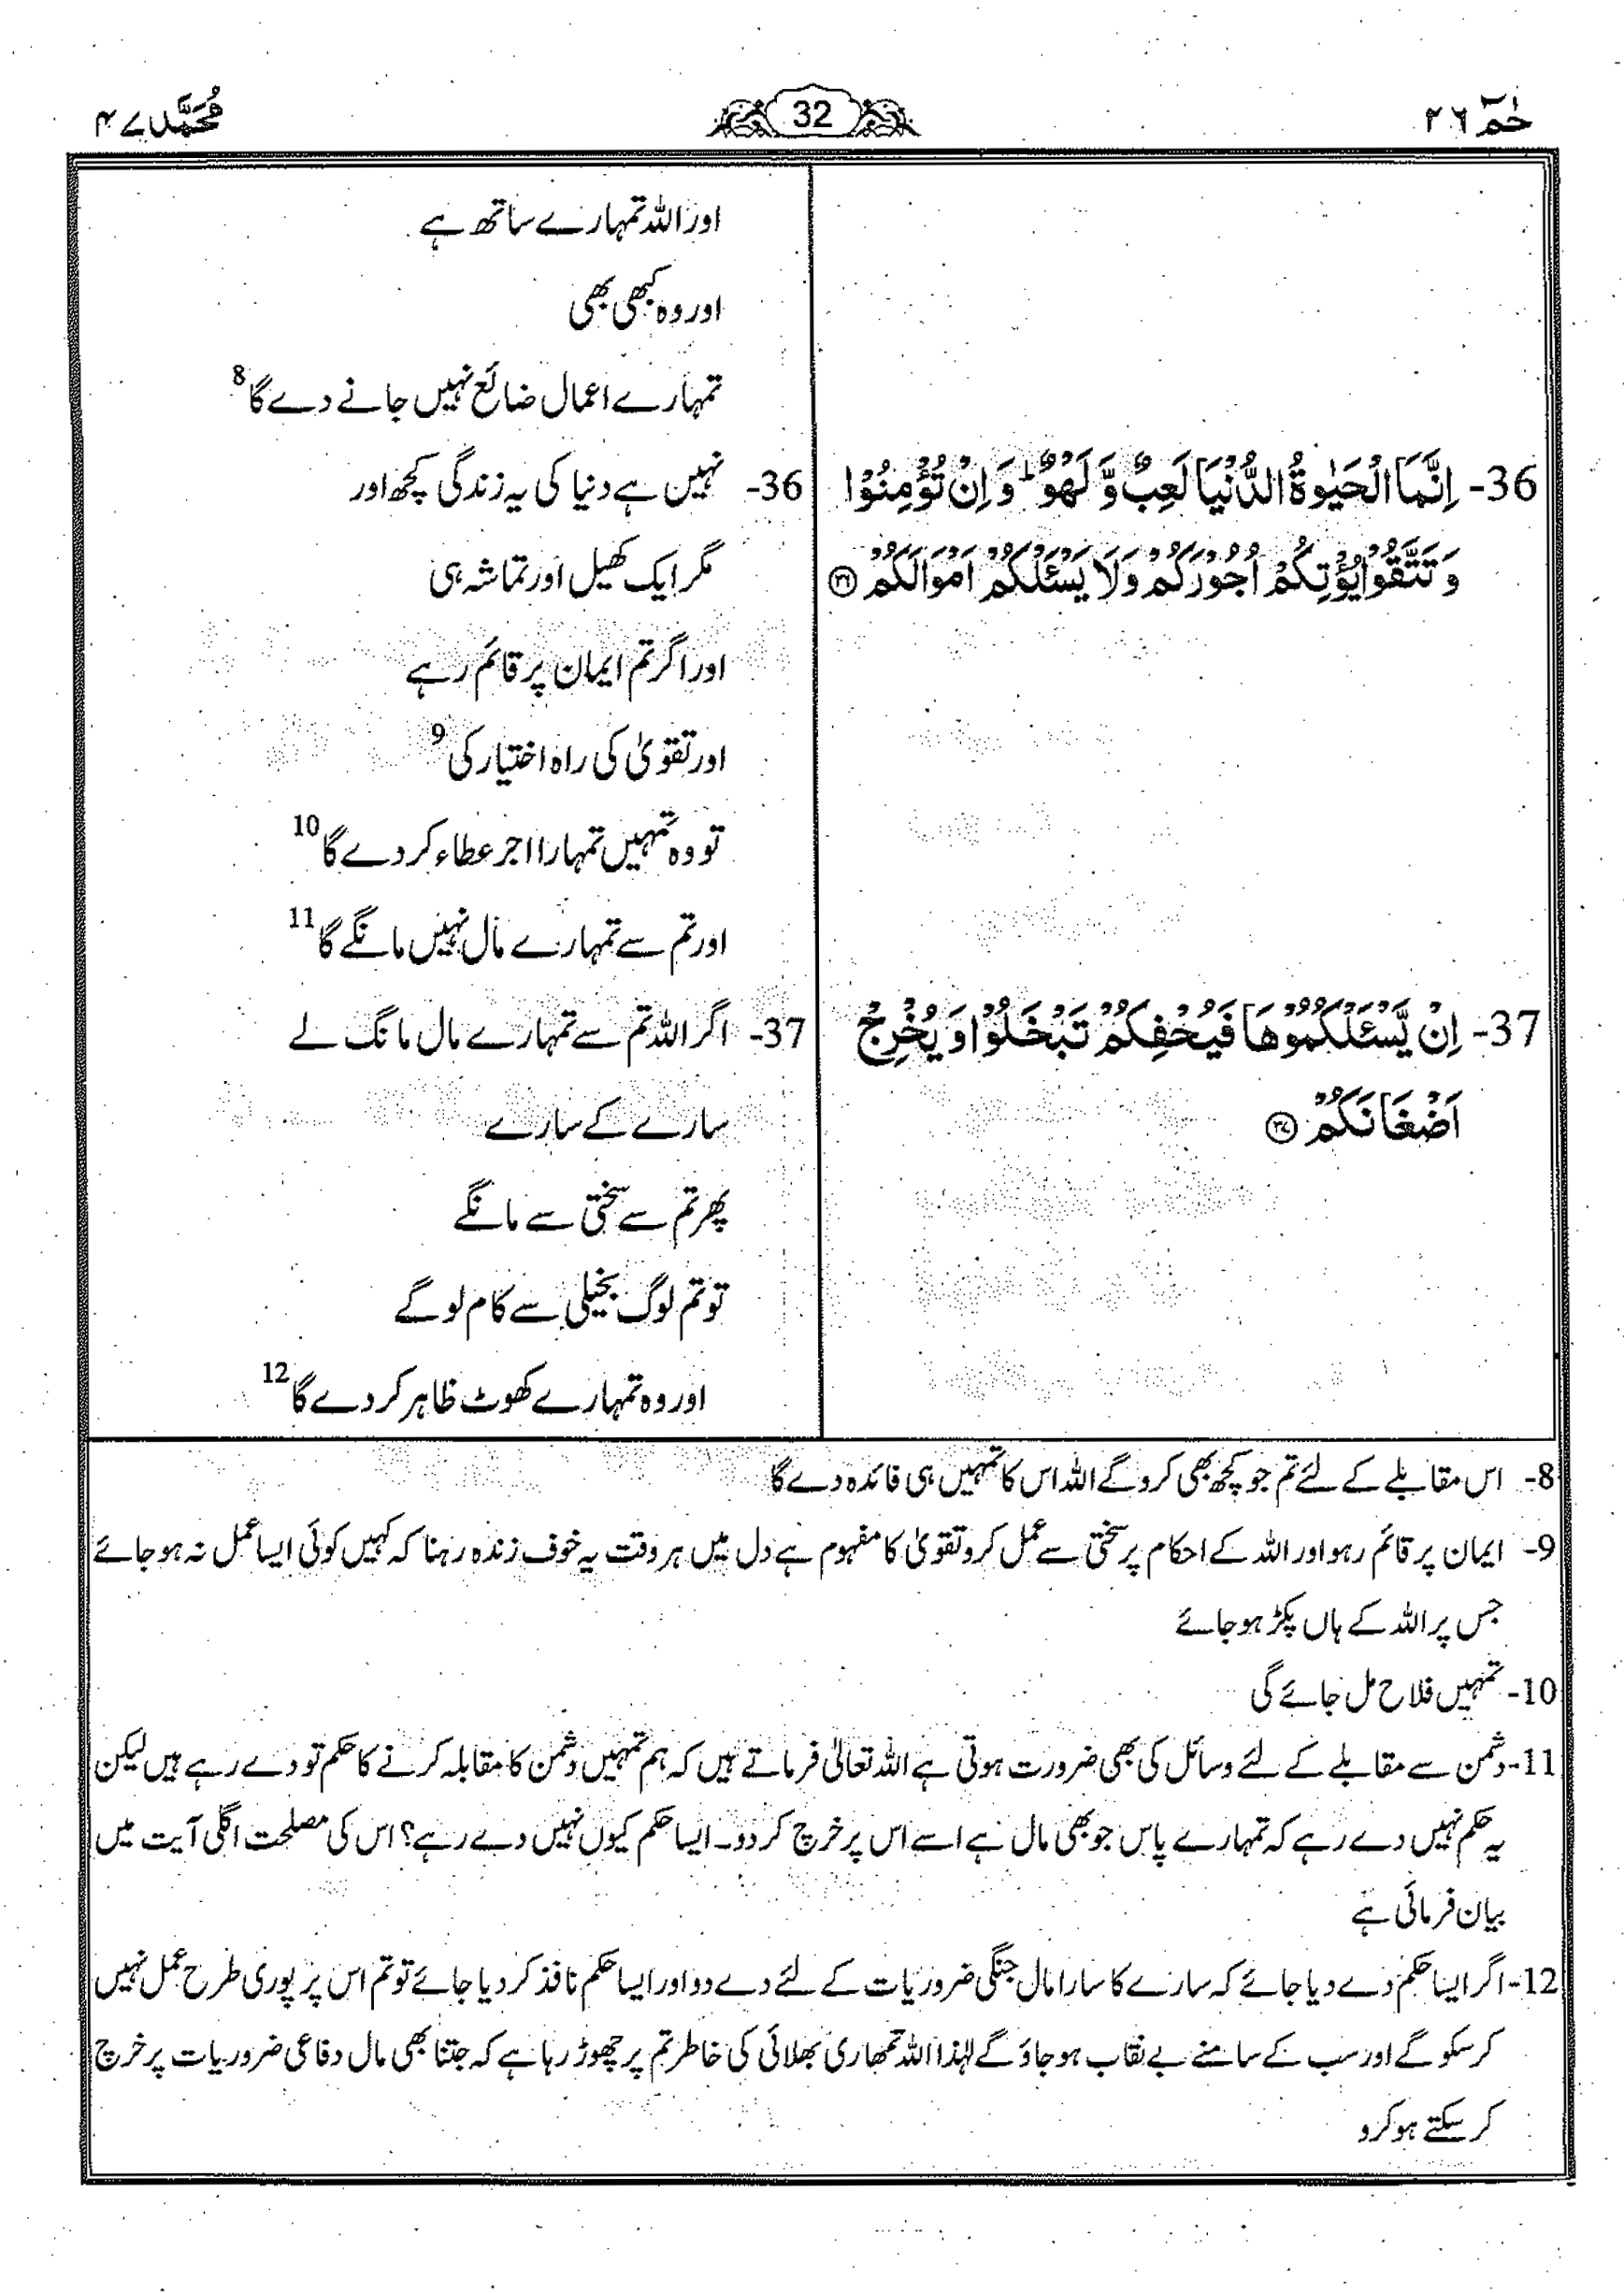 حٰمٓ ٢٦
32
مُحَمَّد ٤٧
اور اللہ تمہارے ساتھ ہے
اور وہ کبھی بھی
تمہارے اعمال ضائع نہیں جانے دے گا 8
36- اِنَّمَا الْحَيٰوةُ الدُّنْيَا لَعِبٌ وَّ لَهْوٌ ؕ وَ اِنْ تُؤْمِنُوْا
وَ تَتَّقُوْا يُؤْتِكُمْ اُجُوْرَكُمْ وَلَا يَسْـَٔلْكُمْ اَمْوَالَكُمْ ﴿۳۶﴾
36- نہیں ہے دنیا کی یہ زندگی کچھ اور
مگر ایک کھیل اور تماشہ ہی
اور اگر تم ایمان پر قائم رہے
اور تقویٰ کی راہ اختیار کی 9
تو وہ تمہیں تمہارا اجر عطاء کر دے گا 10
اور تم سے تمہارے مال نہیں مانگے گا 11
37- اِنْ يَّسْـَٔلْكُمُوْهَا فَيُحْفِكُمْ تَبْخَلُوْا وَ يُخْرِجْ
اَضْغَانَكُمْ ﴿۳۷﴾
37- اگر اللہ تم سے تمہارے مال مانگ لے
سارے کے سارے
پھر تم سے سختی سے مانگے
تو تم لوگ بخیلی سے کام لو گے
اور وہ تمہارے کھوٹ ظاہر کر دے گا 12
8- اس مقابلے کے لئے تم جو کچھ بھی کرو گے اللہ اس کا تمہیں ہی فائدہ دے گا
9- ایمان پر قائم رہو اور اللہ کے احکام پر سختی سے عمل کرو تقویٰ کا مفہوم ہے دل میں ہر وقت یہ خوف زندہ رہنا کہ کہیں کوئی ایسا عمل نہ ہو جائے
جس پر اللہ کے ہاں پکڑ ہو جائے
10- تمہیں فلاح مل جائے گی
11- دشمن سے مقابلے کے لئے وسائل کی بھی ضرورت ہوتی ہے اللہ تعالیٰ فرماتے ہیں کہ ہم تمہیں دشمن کا مقابلہ کرنے کا حکم تو دے رہے ہیں لیکن
یہ حکم نہیں دے رہے کہ تمہارے پاس جو بھی مال ہے اسے اس پر خرچ کر دو۔ ایسا حکم کیوں نہیں دے رہے؟ اس کی مصلحت اگلی آیت میں
بیان فرمائی ہے
12- اگر ایسا حکم دے دیا جائے کہ سارے کا سارا مال جنگی ضروریات کے لئے دے دو اور ایسا حکم نافذ کر دیا جائے تو تم اس پر پوری طرح عمل نہیں
کر سکو گے اور سب کے سامنے بے نقاب ہو جاؤ گے لہٰذا اللہ تمھاری بھلائی کی خاطر تم پر چھوڑ رہا ہے کہ جتنا بھی مال دفاعی ضروریات پر خرچ
کر سکتے ہو کرو